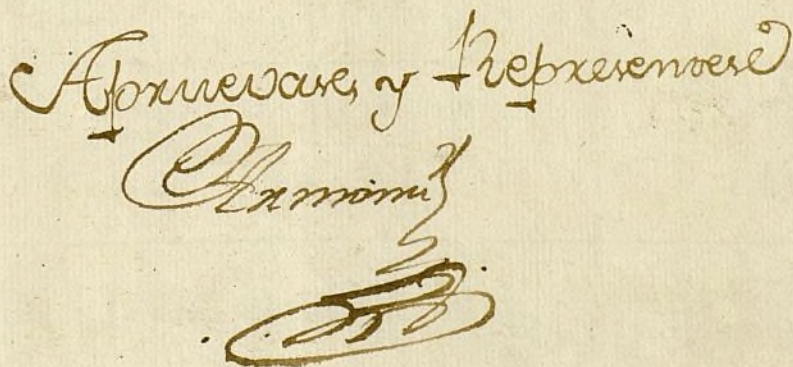 Apruevase, y Representese
Armona